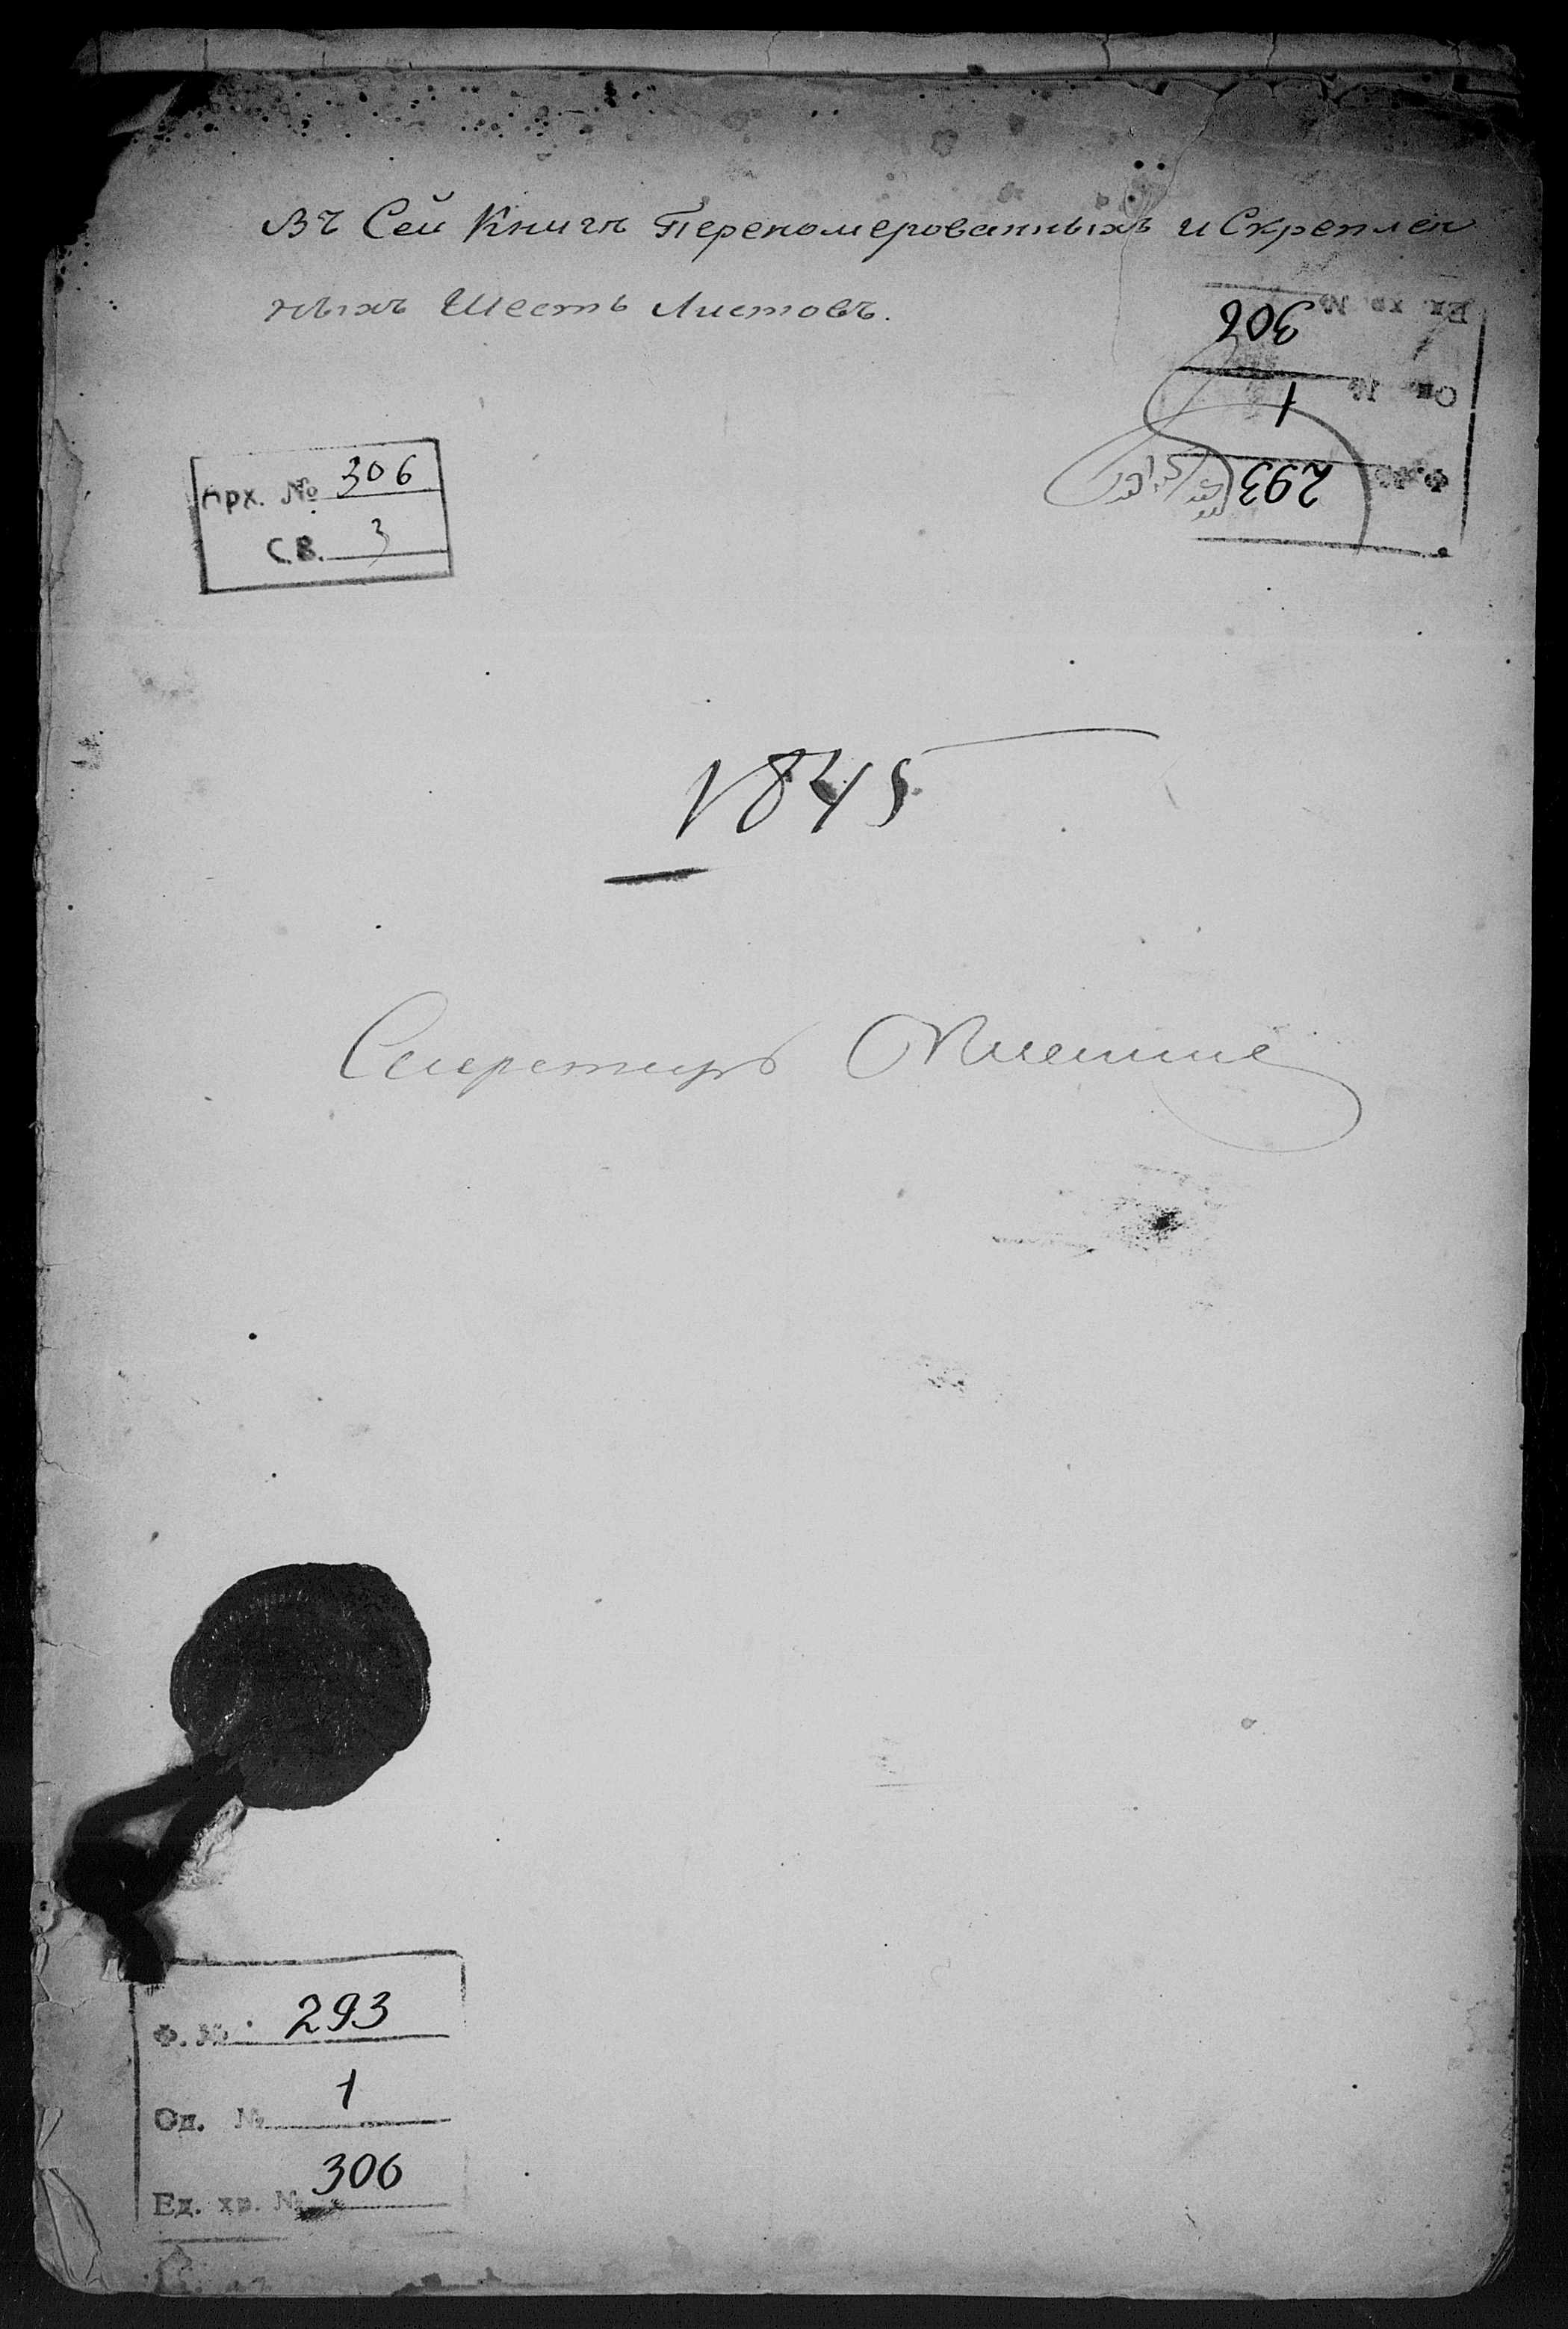 Въ Сей Книгѣ Переномерованныхъ и Скреплен
ныхъ Шесть Листовъ.
Ед. хр. № 306
Оп. № 1
Ф. № 293
Арх. № 306
С.В. 3
1845
Секретарь
Ф. № 293
Оп. № 1
Ед. хр. № 306